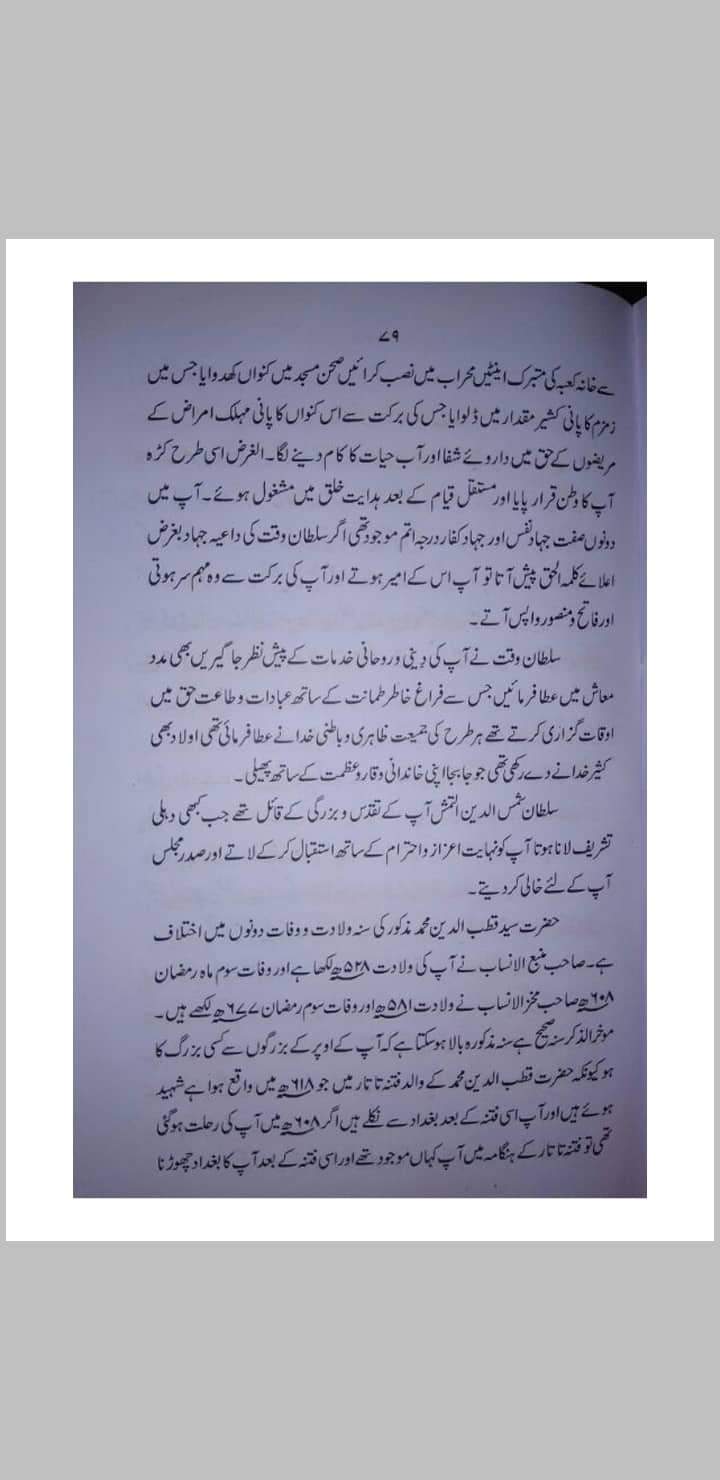 ۷۹
سے خانہ کعبہ کی متبرک اینٹیں محراب میں نصب کرائیں صحن مسجد میں کنواں کھدوایا جس میں
زمزم کا پانی کثیر مقدار میں ڈلوایا جس کی برکت سے اس کنواں کا پانی مہلک امراض کے
مریضوں کے حق میں داروئے شفا اور آب حیات کا کام دینے لگا۔ الغرض اسی طرح کڑہ
آپ کا وطن قرار پایا اور مستقل قیام کے بعد ہدایت خلق میں مشغول ہوئے۔ آپ میں
دونوں صفت جہاد نفس اور جہاد کفار درجہ اتم موجود تھی اگر سلطان وقت کی داعیہ جہاد بغرض
اعلائے کلمہ الحق پیش آتا تو آپ اس کے امیر ہوتے اور آپ کی برکت سے وہ مہم سر ہوتی
اور فاتح و منصور واپس آتے۔
سلطان وقت نے آپ کی دینی و روحانی خدمات کے پیش نظر جاگیریں بھی مدد
معاش میں عطا فرمائیں جس سے فراغ خاطر طمانت کے ساتھ عبادات و طاعت حق میں
اوقات گزاری کرتے تھے ہر طرح کی جمیعت ظاہری و باطنی خدا نے عطا فرمائی تھی اولاد بھی
کثیر خدا نے دے رکھی تھی جو جا بجا اپنی خاندانی وقار و عظمت کے ساتھ پھیلی۔
سلطان شمس الدین التمش آپ کے تقدس و بزرگی کے قائل تھے جب کبھی دہلی
تشریف لانا ہوتا آپ کو نہایت اعزاز و احترام کے ساتھ استقبال کر کے لاتے اور صدر مجلس
آپ کے لئے خالی کر دیتے۔
حضرت سید قطب الدین محمد مذکور کی سنہ ولادت و وفات دونوں میں اختلاف
ہے۔ صاحب منبع الانساب نے آپ کی ولادت ۵۲۸ھ لکھا ہے اور وفات سوم ماہ رمضان
۶۰۸ھ صاحب مخزالانساب نے ولادت ۵۸۱ھ اور وفات سوم رمضان ۶۷۷ھ لکھے ہیں۔
موخرالذکر سنہ صحیح ہے سنہ مذکورہ بالا ہو سکتا ہے کہ آپ کے اوپر کے بزرگوں سے کسی بزرگ کا
ہو کیونکہ حضرت قطب الدین محمد کے والد فتنہ تاتار میں جو ۶۱۸ھ میں واقع ہوا ہے شہید
ہوئے ہیں اور آپ اسی فتنہ کے بعد بغداد سے نکلے ہیں اگر ۶۰۸ھ میں آپ کی رحلت ہو گئی
تھی تو فتنہ تاتار کے ہنگامہ میں آپ کہاں موجود تھے اور اسی فتنہ کے بعد آپ کا بغداد چھوڑنا